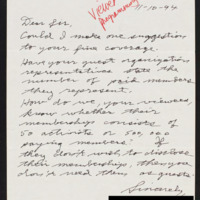 Viewer programming
11-10-94
Dear Sir,
Could I make one suggestion
to your fine coverage.
Have your guest organization
representatives state the
number of paid members
they represent.
How do we, your viewers,
know whether their
memberships consists of
50 activists or 500,000
paying members? If
they don't wish to disclose
their memberships, then you
don't need them as guests.
Sincerely,